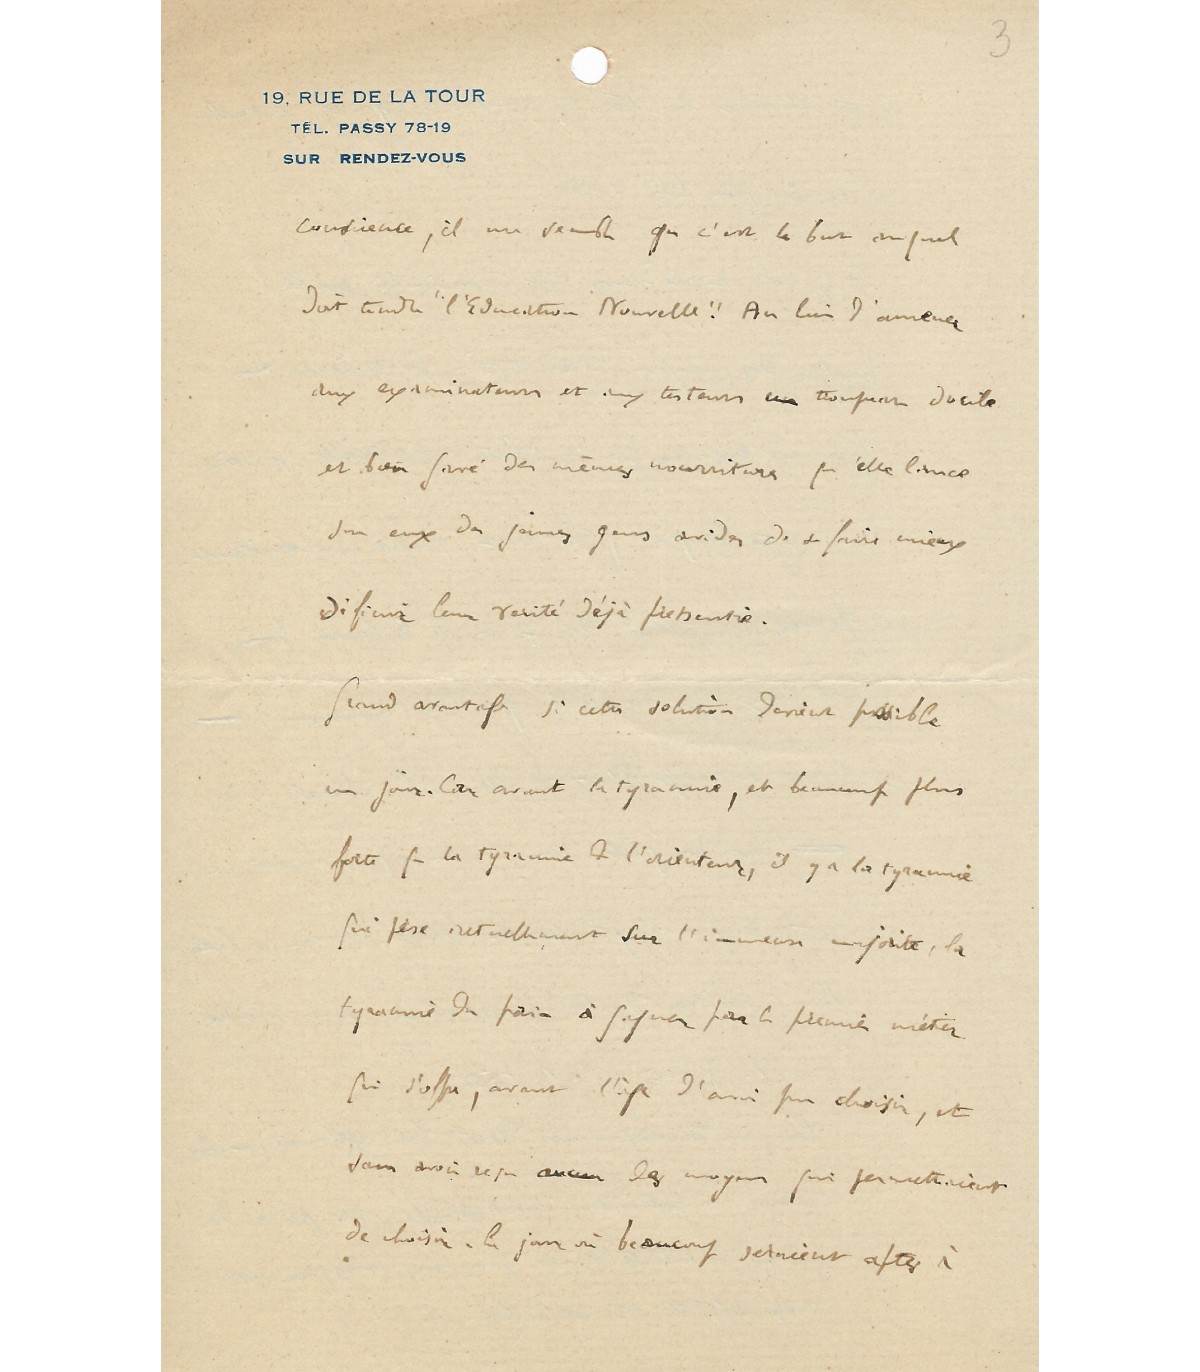 3
19, RUE DE LA TOUR
TÉL. PASSY 78-19
SUR RENDEZ-VOUS
conscience, il me semble que c'est le but auquel
doit tendre "l'Education Nouvelle". Au lieu d'amener
aux examinateurs et aux testeurs un troupeau docile
et bien gavé des mêmes nourritures qu'elle lance
sur eux des jeunes gens avides de se faire mieux
définir leur vérité déjà pressentie.
Grand avantage si cette solution devient possible
un jour. Car avant la tyrannie, et beaucoup plus
forte que la tyrannie de l'orienteur, il y a la tyrannie
qui pèse actuellement sur l'immense majorité, la
tyrannie du pain à gagner par le premier métier
qui s'offre, avant l'âge d'avoir pu choisir, et
sans avoir reçu aucun les moyens qui permettraient
de choisir. Le jour où beaucoup seraient aptes à